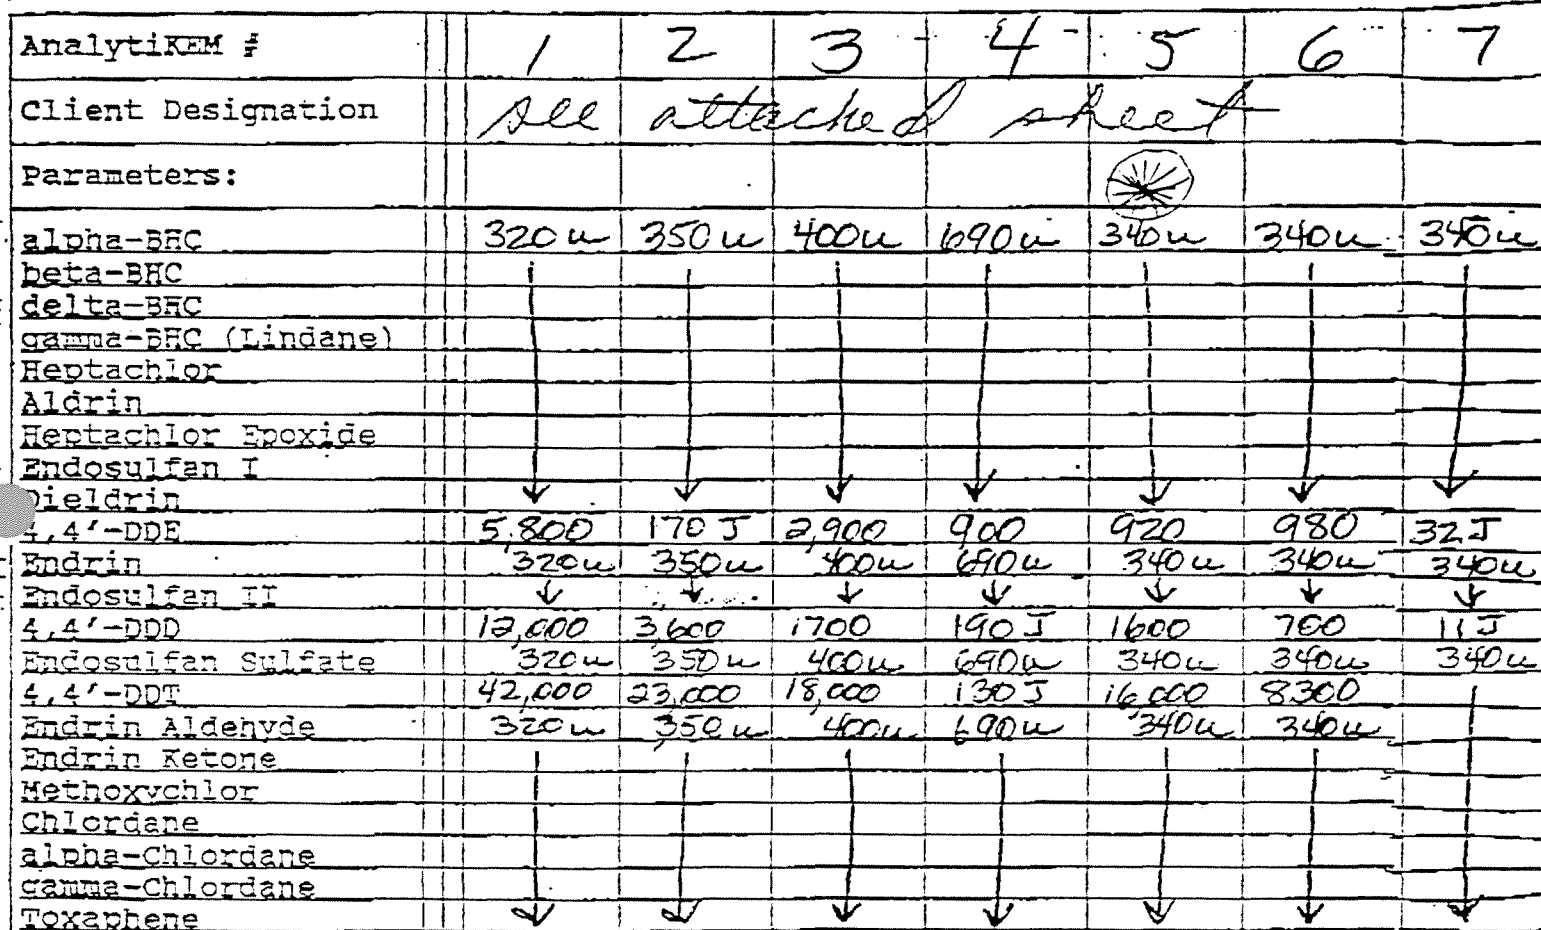 AnalytiKEM # 1 2 3 4 5 6 7
Client Designation see attached sheet
Parameters:
alpha-BHC 320u 350u 400u 690u 340u 340u 340u
beta-BHC
delta-BHC
gamma-BHC (Lindane)
Heptachlor
Aldrin
Heptachlor Epoxide
Endosulfan I
Dieldrin
4,4'-DDE 5,800 170 J 2,900 900 920 980 32 J
Endrin 320u 350u 400u 690u 340u 340u 340u
Endosulfan II
4,4'-DDD 12,000 3,600 1700 190 J 1600 700 11 J
Endosulfan Sulfate 320u 350u 400u 690u 340u 340u 340u
4,4'-DDT 42,000 23,000 18,000 130 J 16,000 8300
Endrin Aldehyde 320u 350u 400u 690u 340u 340u
Endrin Ketone
Methoxychlor
Chlordane
alpha-Chlordane
gamma-Chlordane
Toxaphene